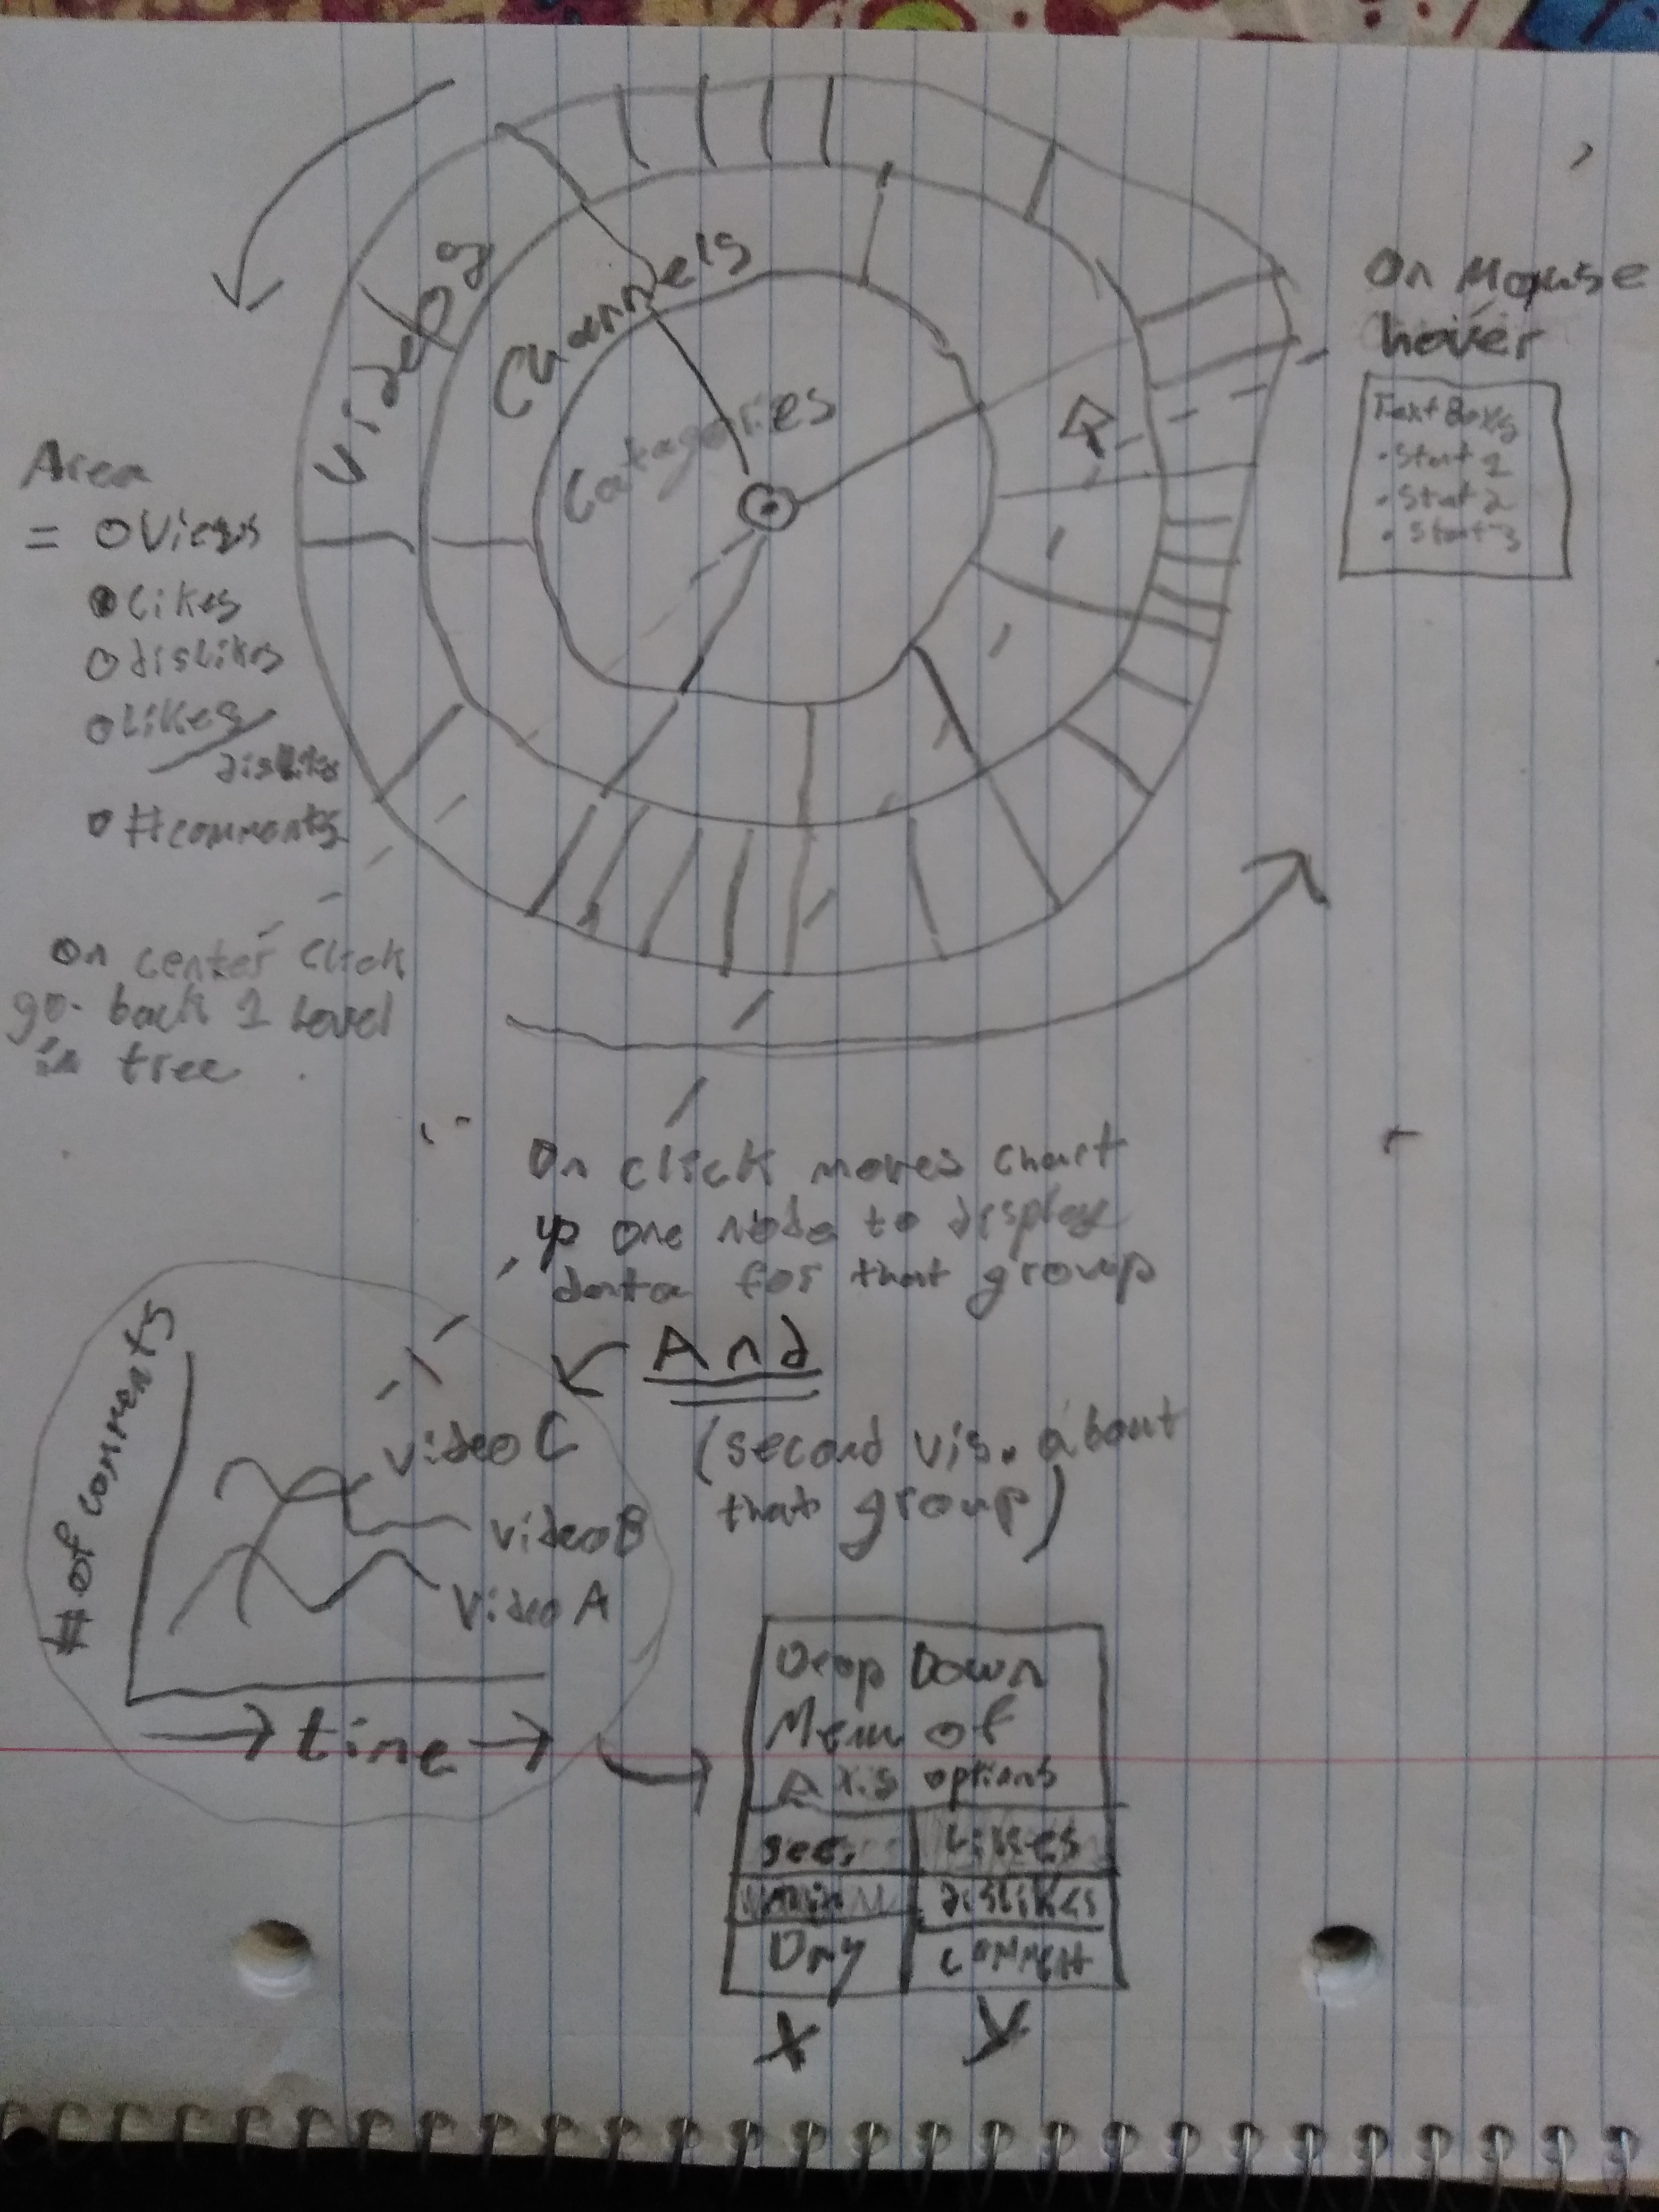 Videos
Channels
Catagories
On Mouse
hover
Text Boxs
• Stat 1
• Stat 2
• Stat 3
Area
= O Views
likes
O dislikes
O Likes/
dislikes
O #comments
On center click
go back 1 Level
in tree
On click moves chart
up one node to display
data for that group
And
(second vis. about
that group)
# of comments
video C
video B
video A
→ time →
Drop Down
Menu of
Axis options
sec. Likes
min dislikes
Day comment
X Y